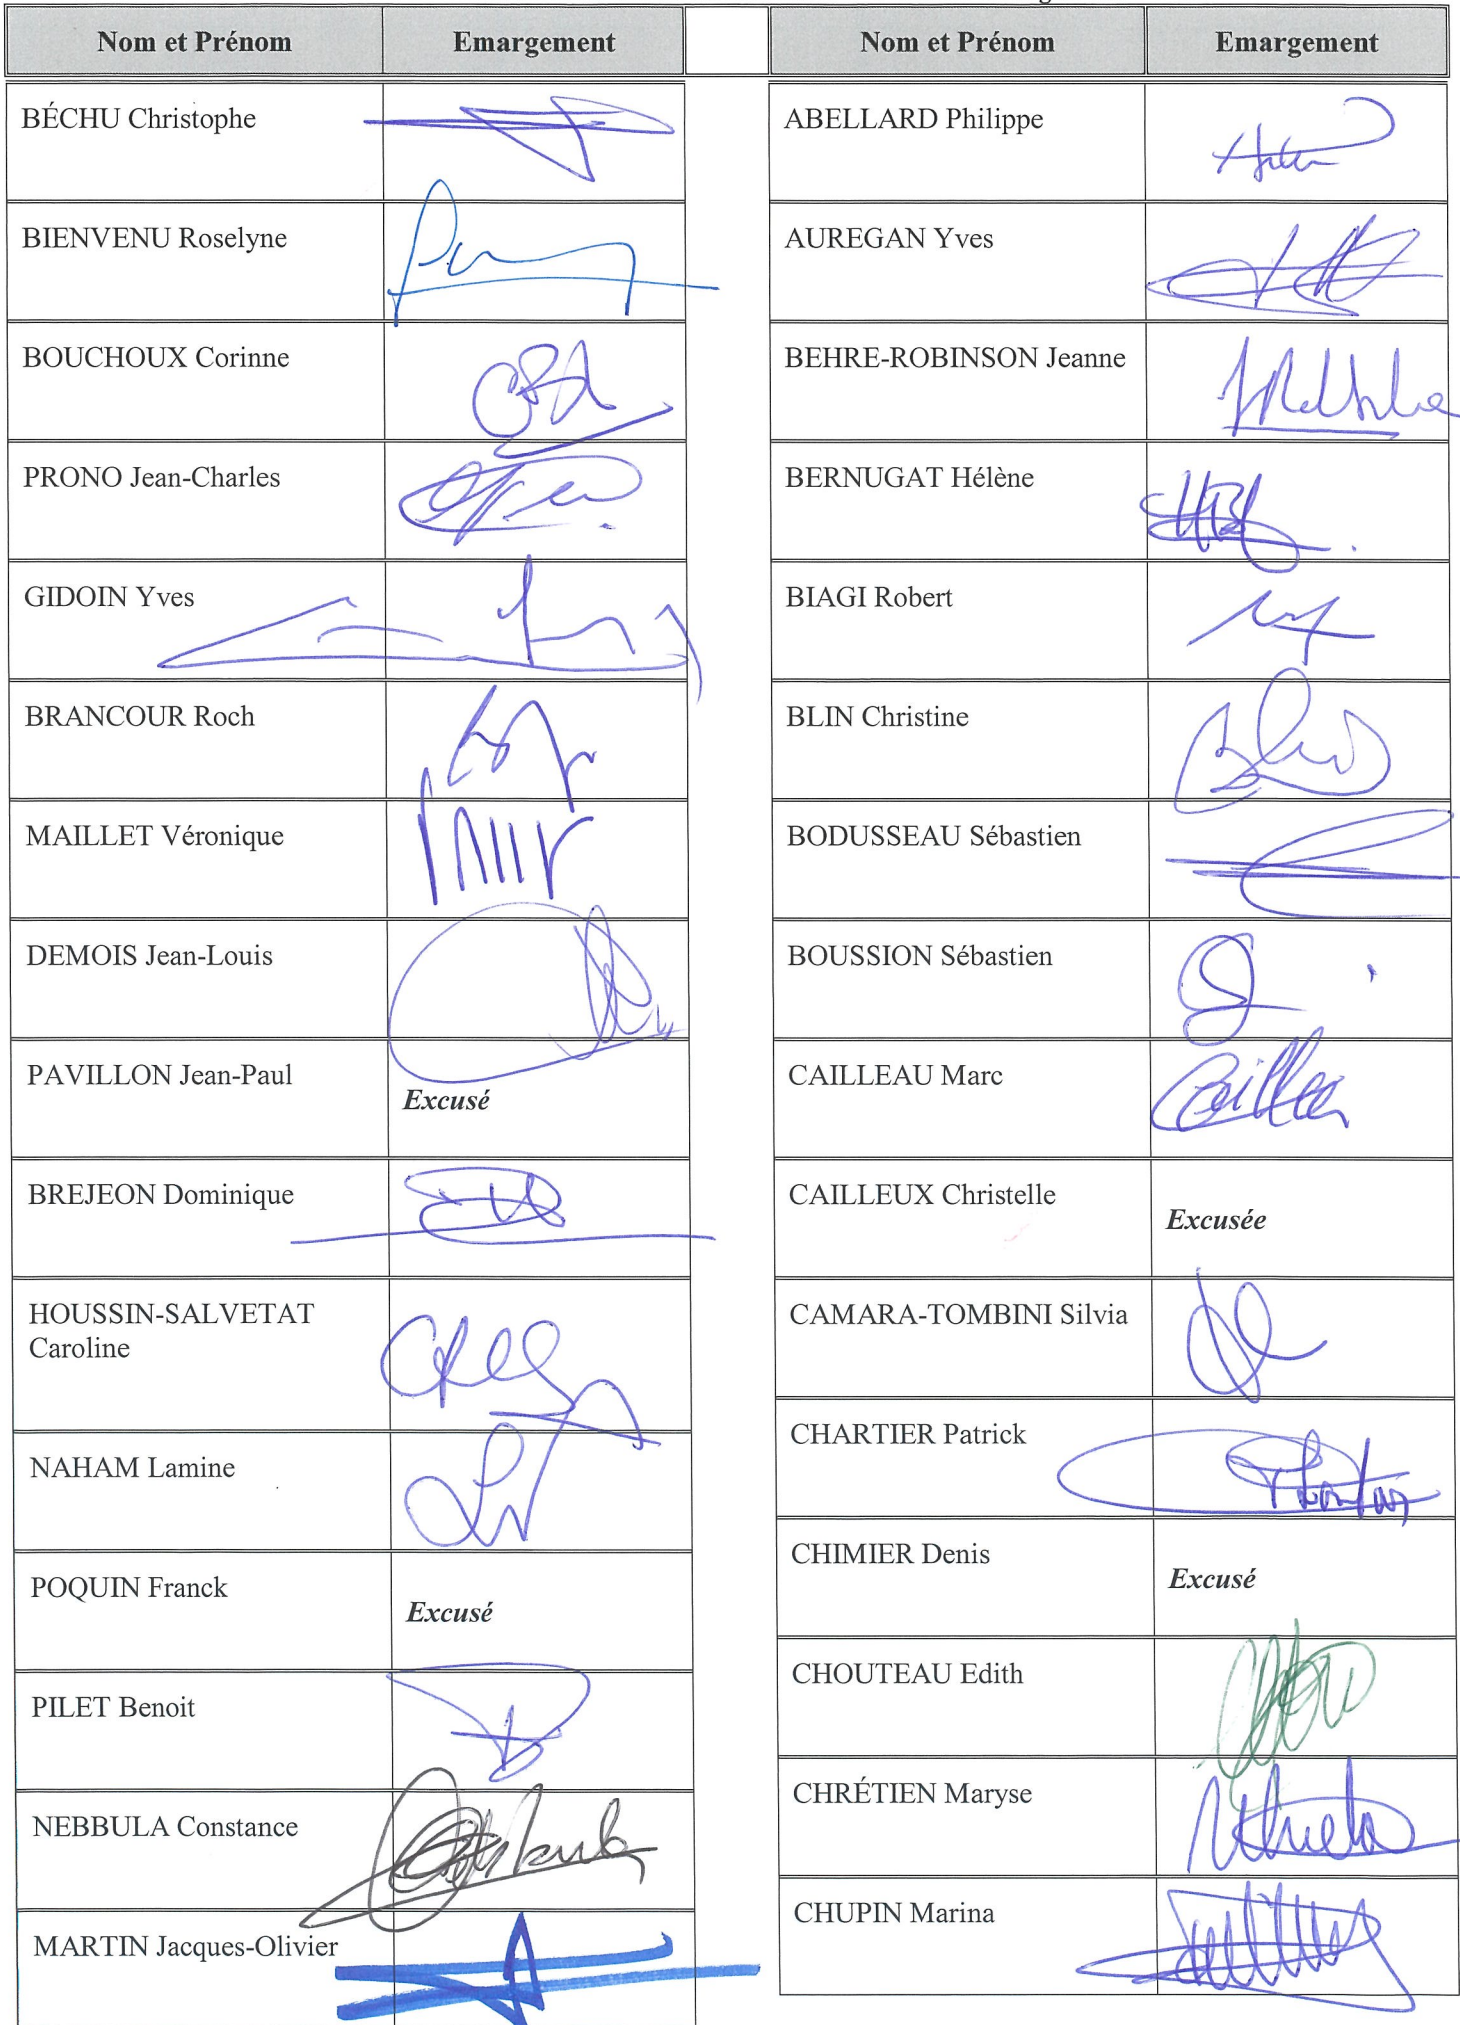 Nom et Prénom
Emargement
BÉCHU Christophe
BIENVENU Roselyne
BOUCHOUX Corinne
PRONO Jean-Charles
GIDOIN Yves
BRANCOUR Roch
MAILLET Véronique
DEMOIS Jean-Louis
PAVILLON Jean-Paul
Excusé
BREJEON Dominique
HOUSSIN-SALVETAT
Caroline
NAHAM Lamine
POQUIN Franck
Excusé
PILET Benoit
NEBBULA Constance
MARTIN Jacques-Olivier
Nom et Prénom
Emargement
ABELLARD Philippe
AUREGAN Yves
BEHRE-ROBINSON Jeanne
BERNUGAT Hélène
BIAGI Robert
BLIN Christine
BODUSSEAU Sébastien
BOUSSION Sébastien
CAILLEAU Marc
CAILLEUX Christelle
Excusée
CAMARA-TOMBINI Silvia
CHARTIER Patrick
CHIMIER Denis
Excusé
CHOUTEAU Edith
CHRÉTIEN Maryse
CHUPIN Marina